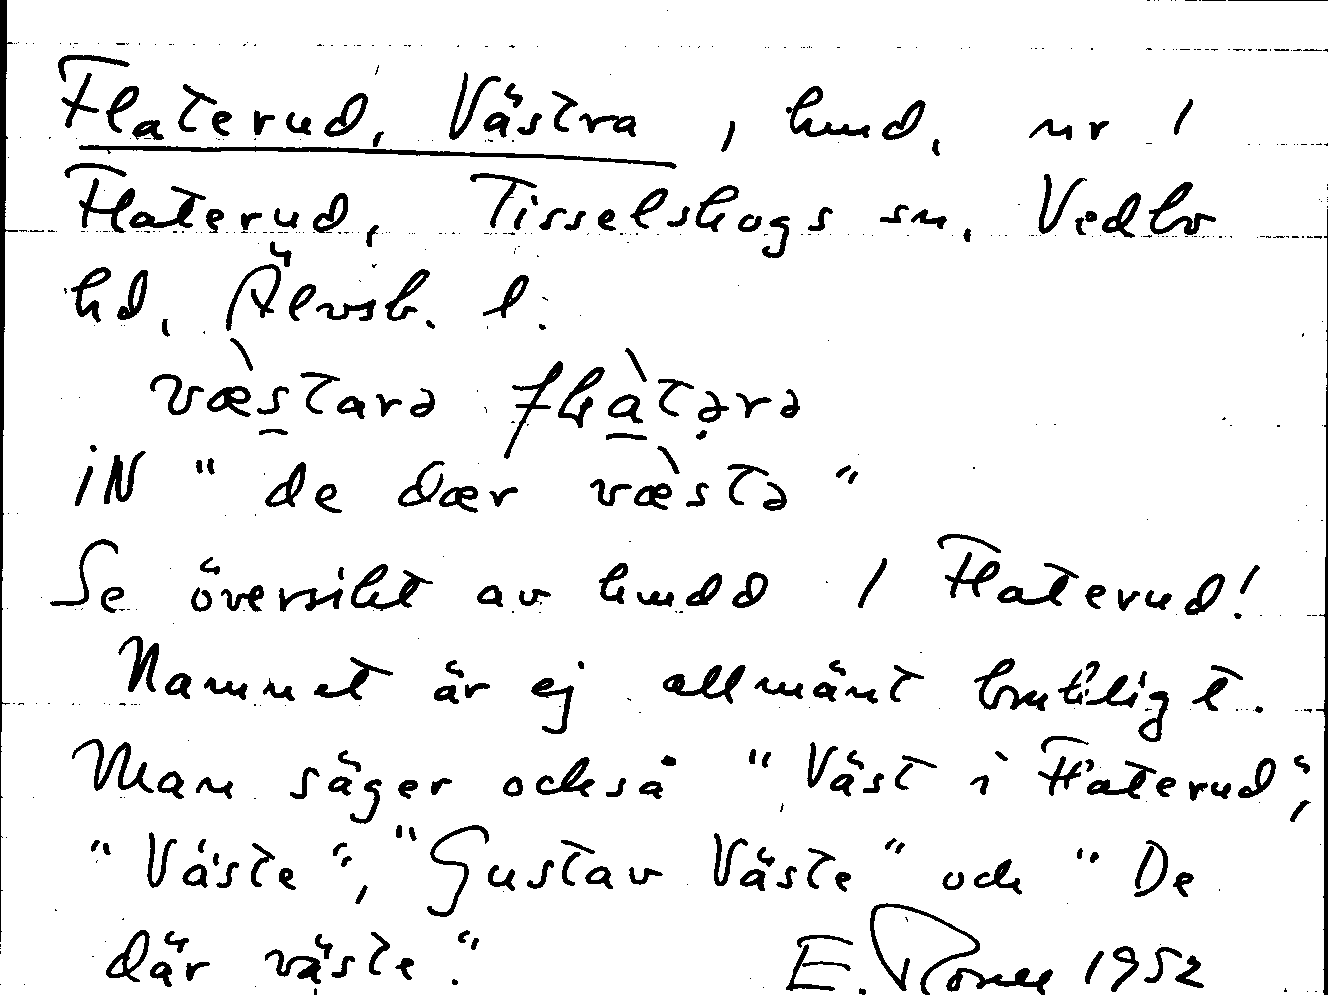 Flaterud, Västra, hmd. nr 1
Flaterud, Tisselskogs sn, Vedbo
hd, Älvsb. l.
væ̀starə flàtərə
iN "de dær væ̀stə"
Se översikt av hmdd 1 Flaterud!
Namnet är ej allmänt brukligt.
Man säger också "Väst i Flaterud",
"Väste", "Gustav Väste" och "De
där väste." E. 1952